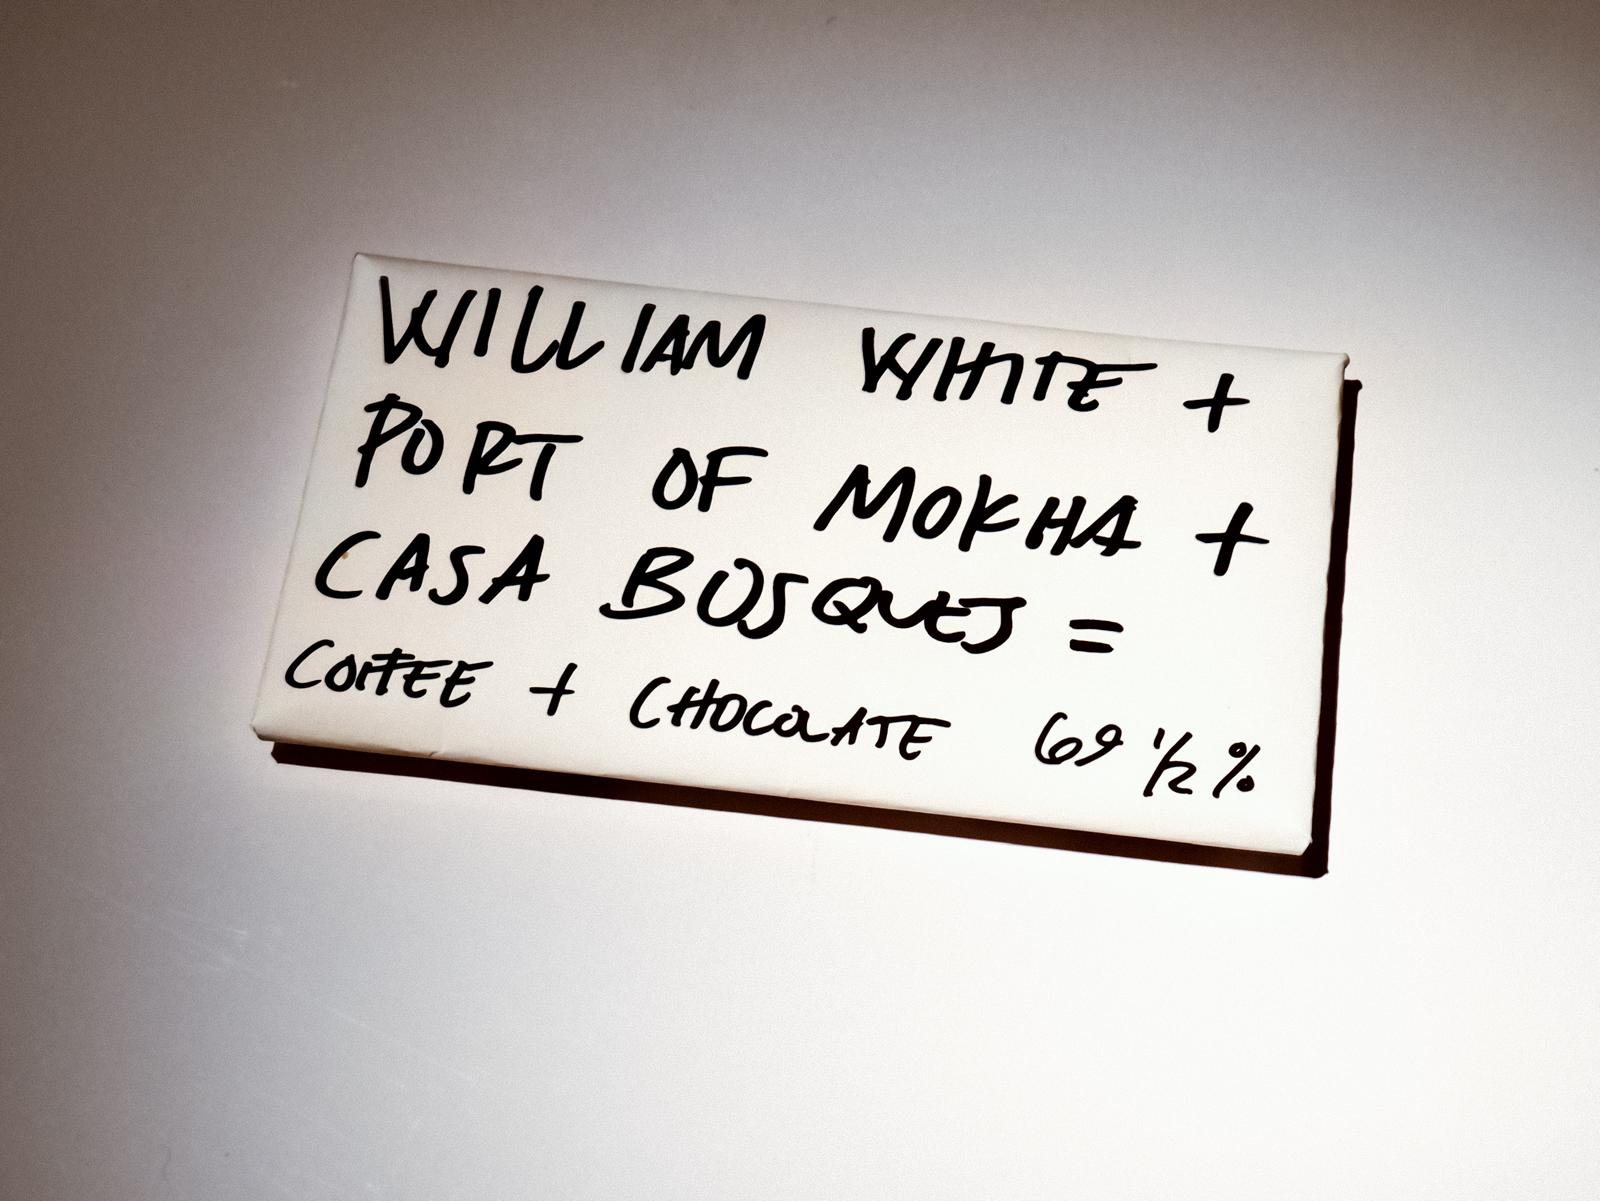 WILLIAM WHITE +
PORT OF MOKHA +
CASA BOSQUES =
COFFEE + CHOCOLATE 69 1/2 %